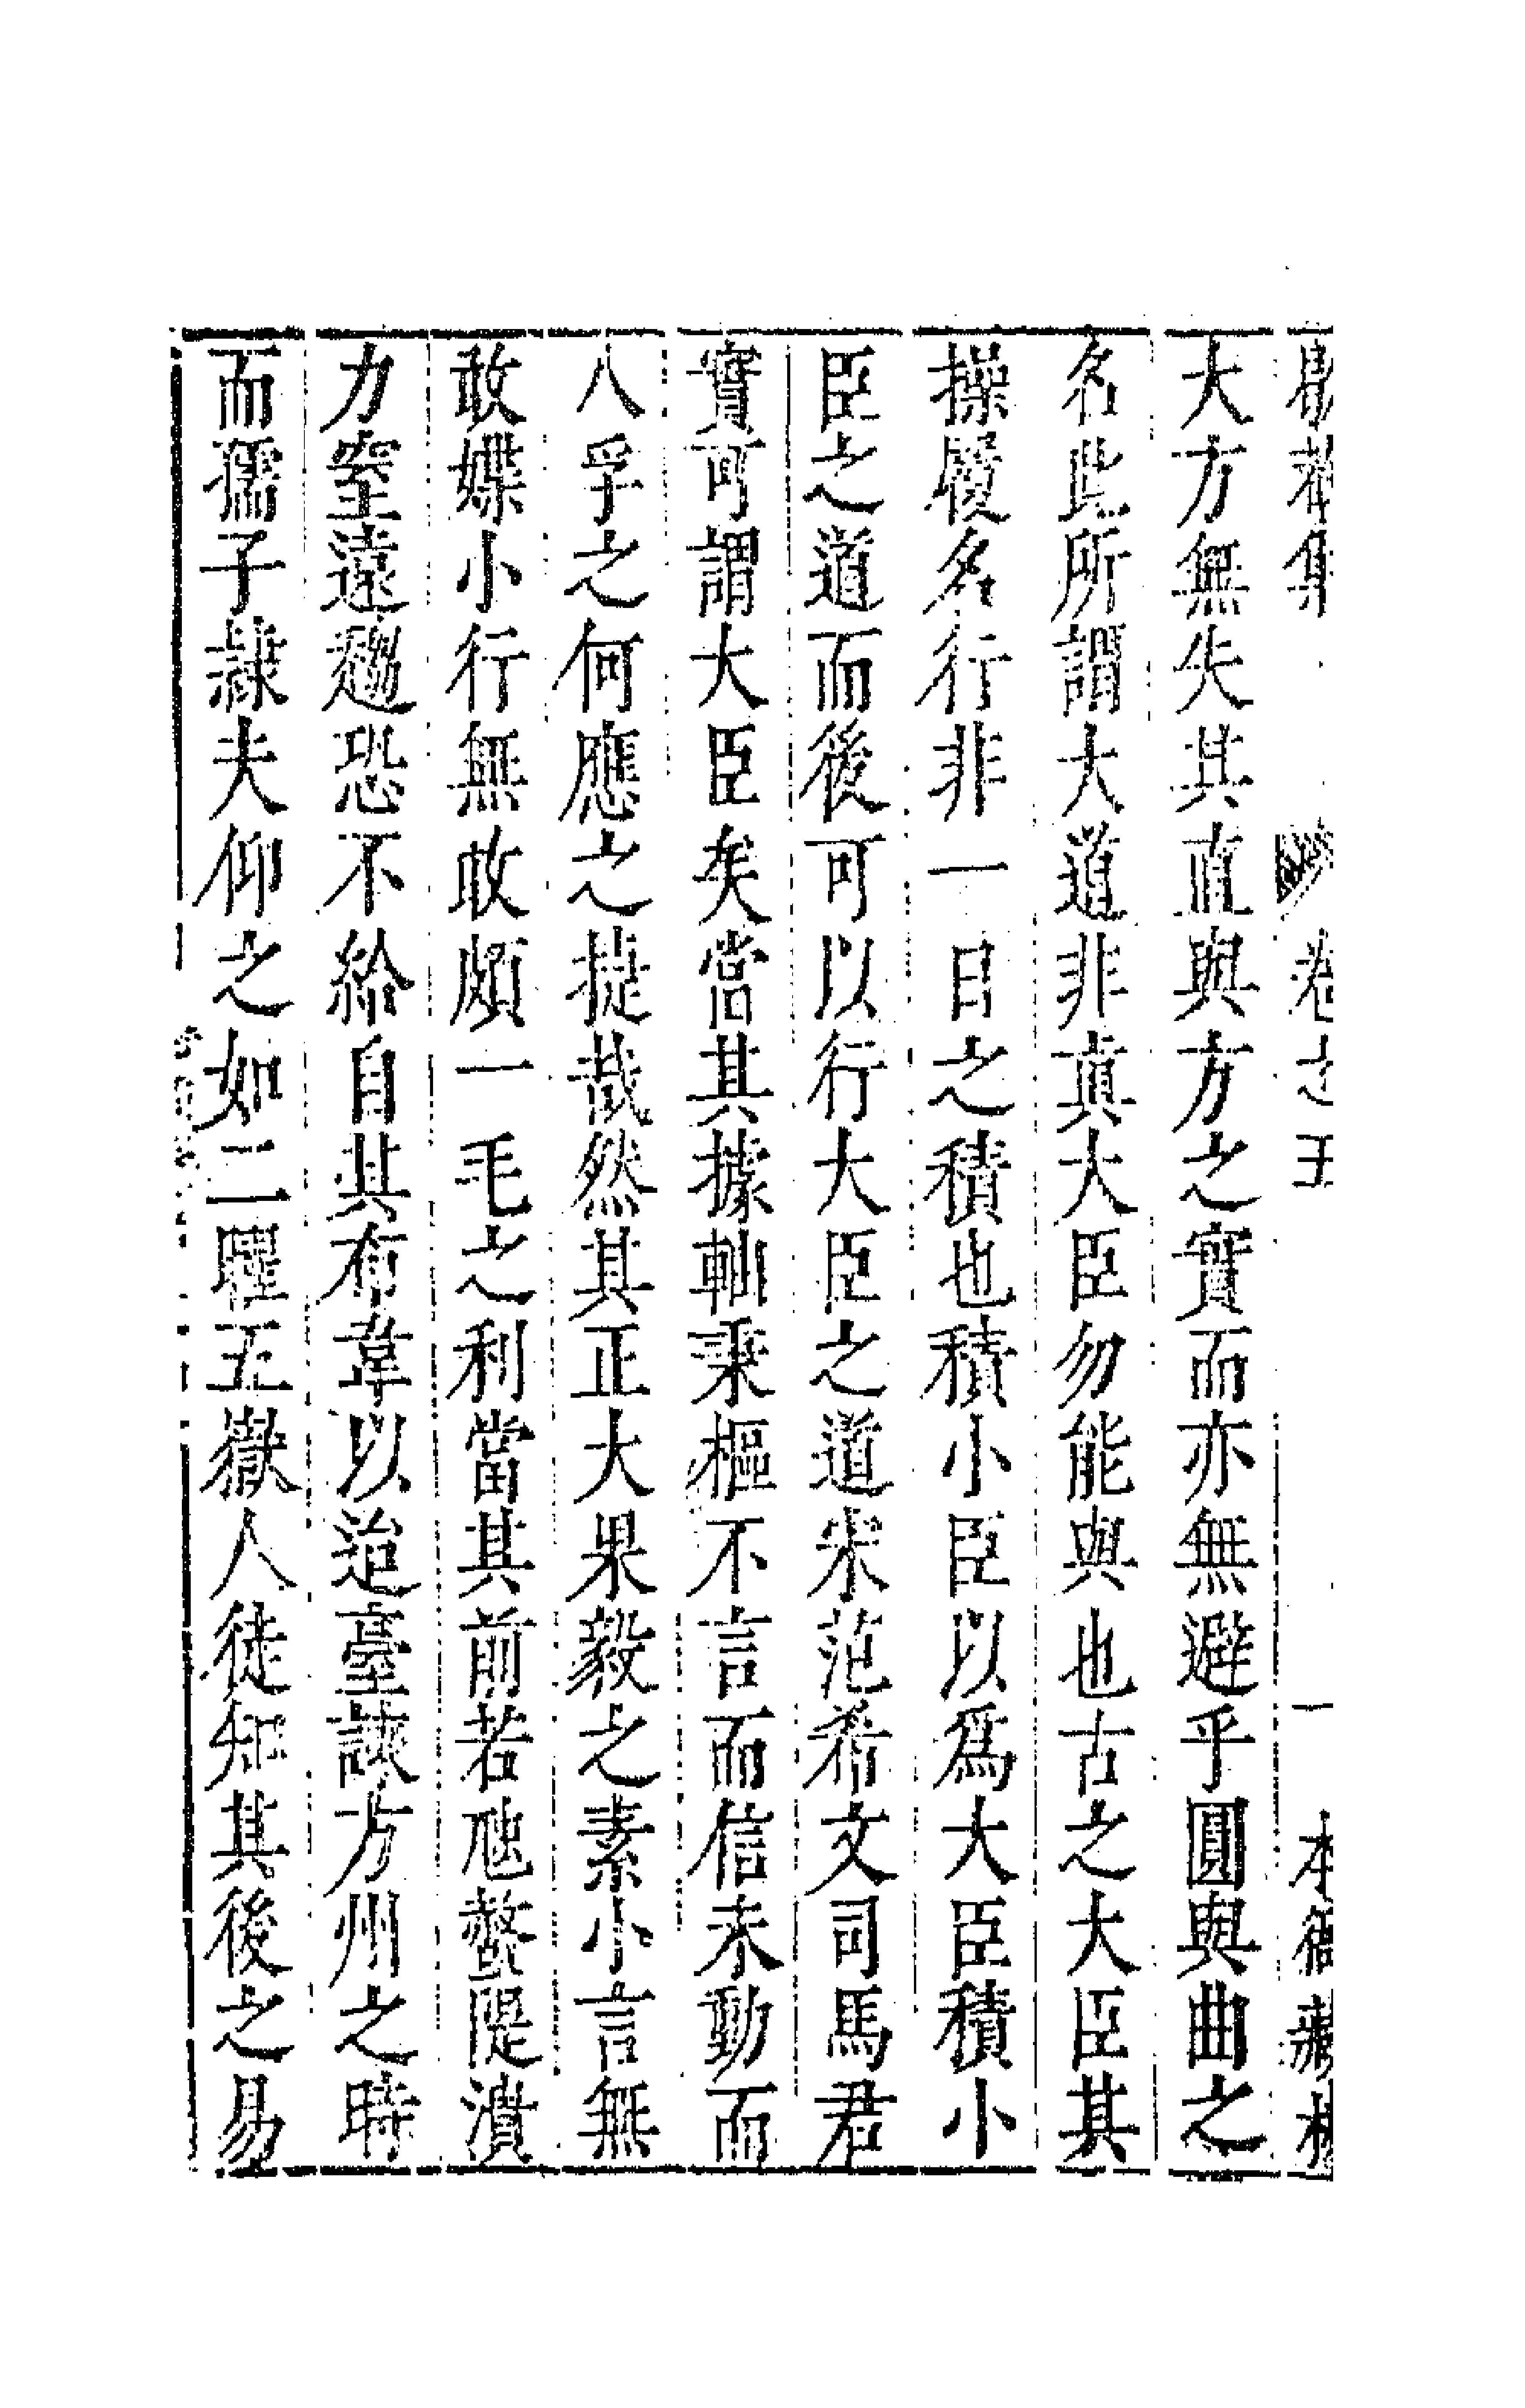 集 卷之五 一
大方無失其直與方之實而亦無避乎圓與曲之
名此所謂大道非真大臣勿能與也古之大臣其
操履名行非一日之積也積小臣以為大臣積小
臣之道而後可以行大臣之道宋范希文司馬君
實可謂大臣矣當其據軸秉樞不言而信未動而
人孚之何應之捷哉然其正大果毅之素小言無
敢媟小行無敢頗一毛之利當其前若虺螫隄潰
力窒遠趨恐不給自其布韋以迨臺諫方州之時
而孺子隷夫仰之如二曜五嶽人徒知其後之易